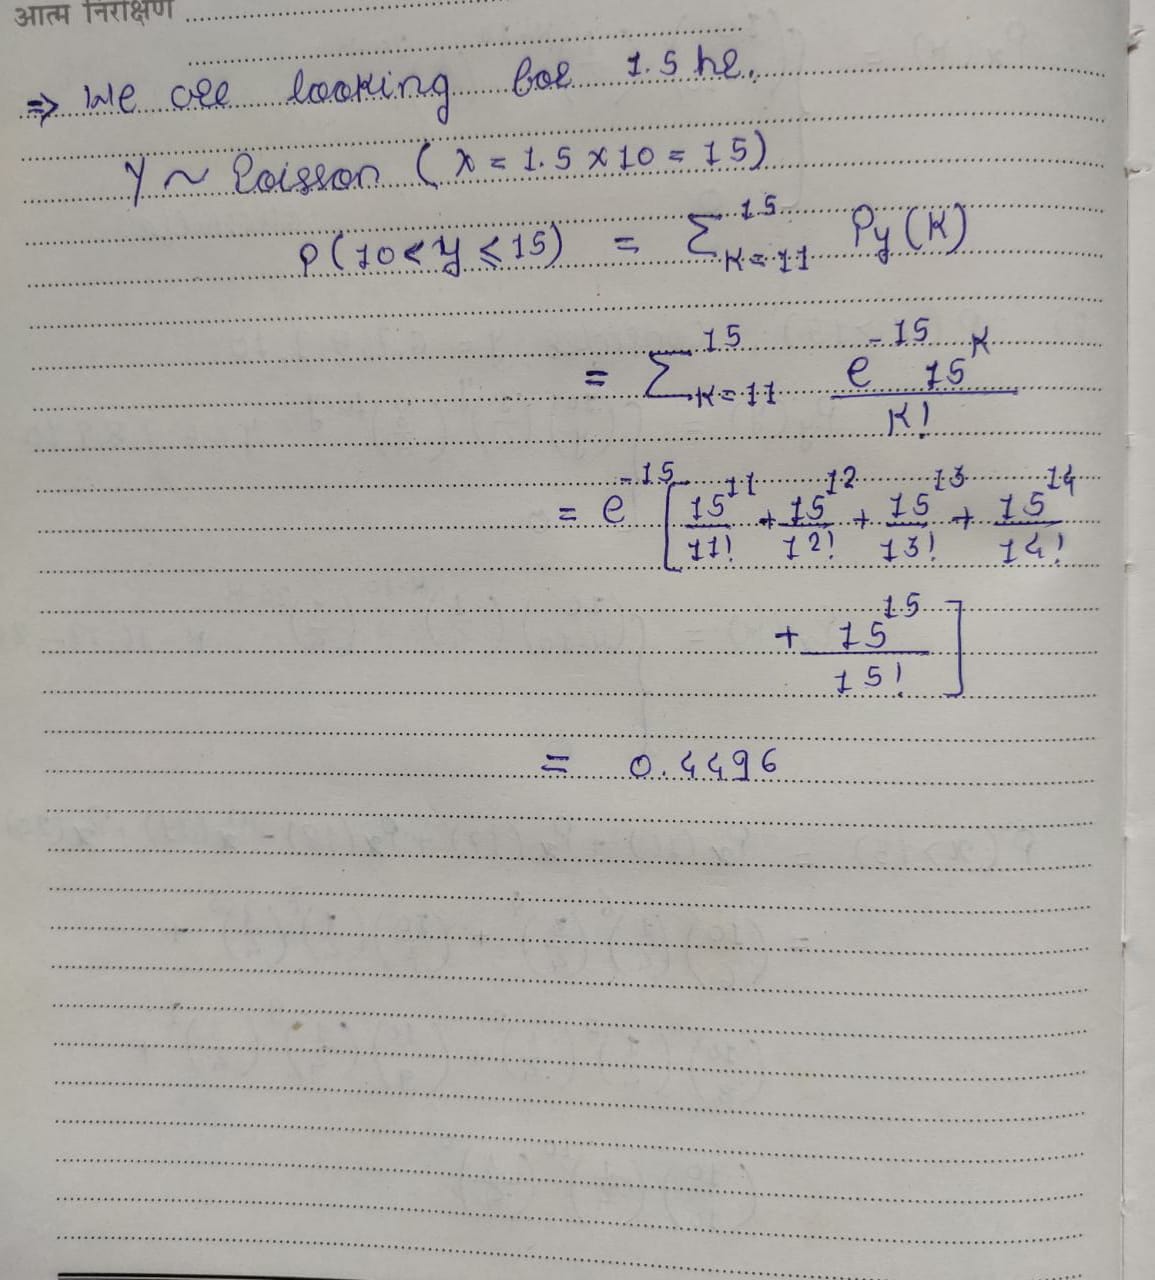 आत्म निरीक्षण
⇒ We are looking for 1.5 hr.
Y ~ Poisson (λ = 1.5 × 10 = 15)
P(10 < y ≤ 15) = Σ_{K=11}^{15} Py(K)
= Σ_{K=11}^{15} e^{-15} 15^K / K!
= e^{-15} [ 15^{11}/11! + 15^{12}/12! + 15^{13}/13! + 15^{14}/14!
+ 15^{15}/15! ]
= 0.4496